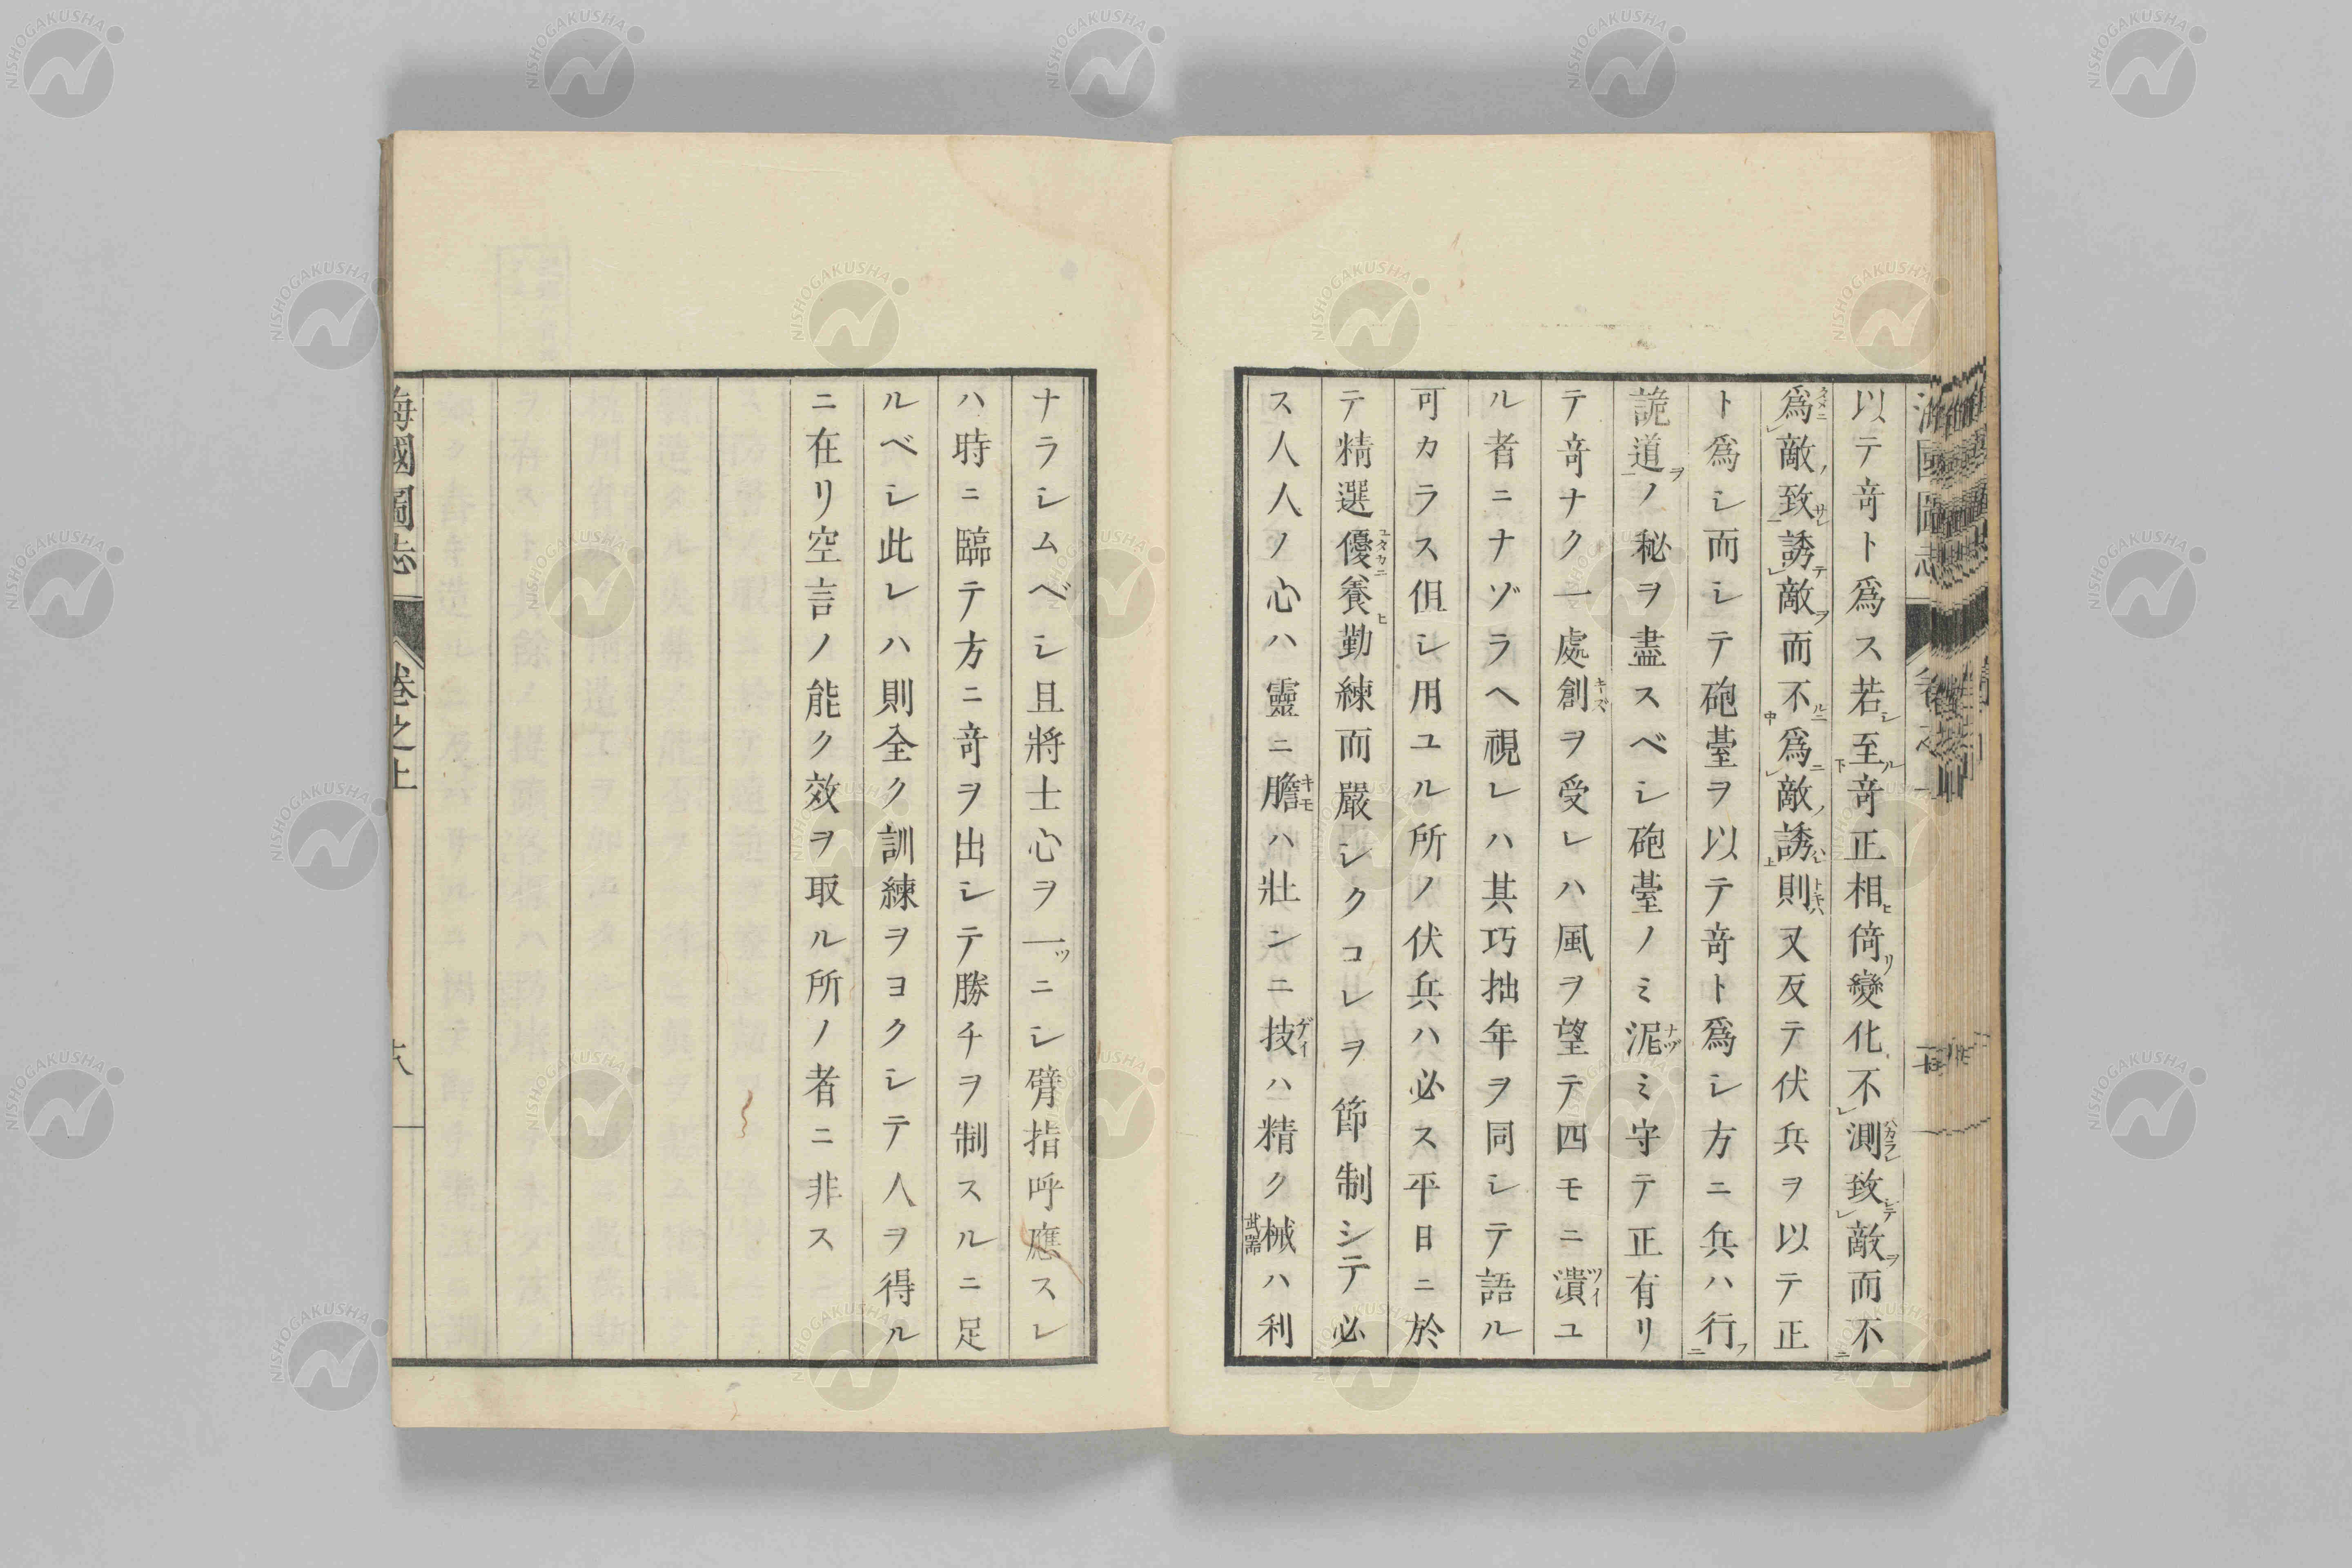 以テ竒ト爲ス若シ至ル竒正相ヒ倚リ變化不測致シテ敵ヲ而不
爲敵ノ致サレ誘テ敵ヲ而不ルニ爲ニ敵ノ誘ハレ則トキハ又反テ伏兵ヲ以テ正
ト爲シ而シテ砲臺ヲ以テ竒ト爲シ方ニ兵ハ行フ
詭道ヲノ秘ヲ盡スベシ砲臺ノミ泥ナヅミ守テ正有リ
テ竒ナク一處創キズヲ受レハ風ヲ望テ四モニ潰ツイユ
ル者ニナゾラヘ視レハ其巧拙年ヲ同シテ語ル
可カラス但シ用ユル所ノ伏兵ハ必ス平日ニ於
テ精選優ユタカニ養ヒ勤練而嚴シクコレヲ節制シテ必
ス人人ノ心ハ靈ニ膽キモハ壯ンニ技ゲイハ精ク械武器ハ利
ナラシムベシ且將士心ヲ一ツニシ臂指呼應スレ
ハ時ニ臨テ方ニ竒ヲ出シテ勝チヲ制スルニ足
ルベシ此レハ則全ク訓練ヲヨクシテ人ヲ得ル
ニ在リ空言ノ能ク效ヲ取ル所ノ者ニ非ス
海國圖志
卷之上
NISHOGAKUSHA